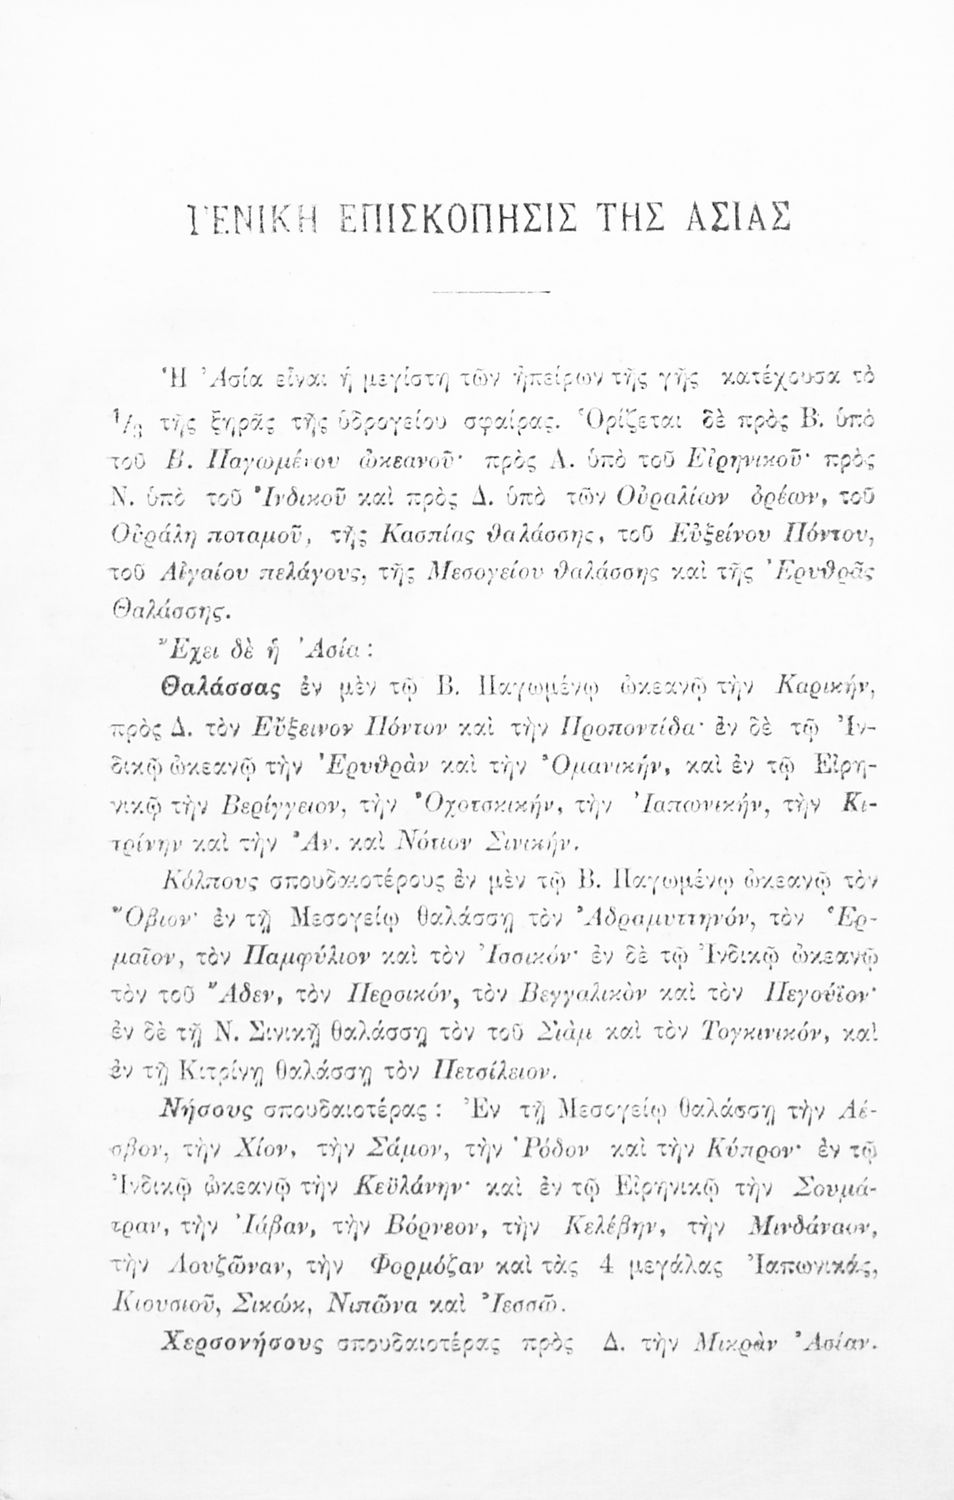 ΓΕΝΙΚΗ ΕΠΙΣΚΟΠΗΣΙΣ ΤΗΣ ΑΣΙΑΣ
Ἡ Ἀσία εἶναι ἡ μεγίστη τῶν ἠπείρων τῆς γῆς κατέχουσα τὸ
1/3 τῆς ξηρᾶς τῆς ὑδρογείου σφαίρας. Ὁρίζεται δὲ πρὸς Β. ὑπὸ
τοῦ Β. Παγωμένου ὠκεανοῦ· πρὸς Α. ὑπὸ τοῦ Εἰρηνικοῦ· πρὸς
Ν. ὑπὸ τοῦ Ἰνδικοῦ καὶ πρὸς Δ. ὑπὸ τῶν Οὐραλίων ὀρέων, τοῦ
Οὐράλη ποταμοῦ, τῆς Κασπίας θαλάσσης, τοῦ Εὐξείνου Πόντου,
τοῦ Αἰγαίου πελάγους, τῆς Μεσογείου θαλάσσης καὶ τῆς Ἐρυθρᾶς
Θαλάσσης.
Ἔχει δὲ ἡ Ἀσία :
Θαλάσσας ἐν μὲν τῷ Β. Παγωμένῳ ὠκεανῷ τὴν Καρικήν,
πρὸς Δ. τὸν Εὔξεινον Πόντον καὶ τὴν Προποντίδα· ἐν δὲ τῷ Ἰν-
δικῷ ὠκεανῷ τὴν Ἐρυθρὰν καὶ τὴν Ὀμανικήν, καὶ ἐν τῷ Εἰρη-
νικῷ τὴν Βερίγγειον, τὴν Ὀχοτσκικήν, τὴν Ἰαπωνικήν, τὴν Κι-
τρίνην καὶ τὴν Ἀν. καὶ Νότιον Σινικήν.
Κόλπους σπουδαιοτέρους ἐν μὲν τῷ Β. Παγωμένῳ ὠκεανῷ τὸν
Ὄβιον· ἐν τῇ Μεσογείῳ θαλάσσῃ τὸν Ἀδραμυττηνόν, τὸν Ἑρ-
μαῖον, τὸν Παμφύλιον καὶ τὸν Ἰσσικόν· ἐν δὲ τῷ Ἰνδικῷ ὠκεανῷ
τὸν τοῦ Ἄδεν, τὸν Περσικόν, τὸν Βεγγαλικὸν καὶ τὸν Πεγούϊον·
ἐν δὲ τῇ Ν. Σινικῇ θαλάσσῃ τὸν τοῦ Σιὰμ καὶ τὸν Τογκινικόν, καὶ
ἐν τῇ Κιτρίνῃ θαλάσσῃ τὸν Πετσίλειον.
Νήσους σπουδαιοτέρας : Ἐν τῇ Μεσογείῳ θαλάσσῃ τὴν Λέ-
σβον, τὴν Χίον, τὴν Σάμον, τὴν Ῥόδον καὶ τὴν Κύπρον· ἐν τῷ
Ἰνδικῷ ὠκεανῷ τὴν Κεϋλάνην· καὶ ἐν τῷ Εἰρηνικῷ τὴν Σουμά-
τραν, τὴν Ἰάβαν, τὴν Βόρνεον, τὴν Κελέβην, τὴν Μινδάναον,
τὴν Λουζῶναν, τὴν Φορμόζαν καὶ τὰς 4 μεγάλας Ἰαπωνικάς,
Κιουσιοῦ, Σικώκ, Νιπῶνα καὶ Ἰεσσῶ.
Χερσονήσους σπουδαιοτέρας πρὸς Δ. τὴν Μικρὰν Ἀσίαν.